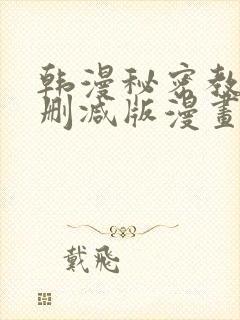 韩漫秘密教
删减版漫畫
戴飛